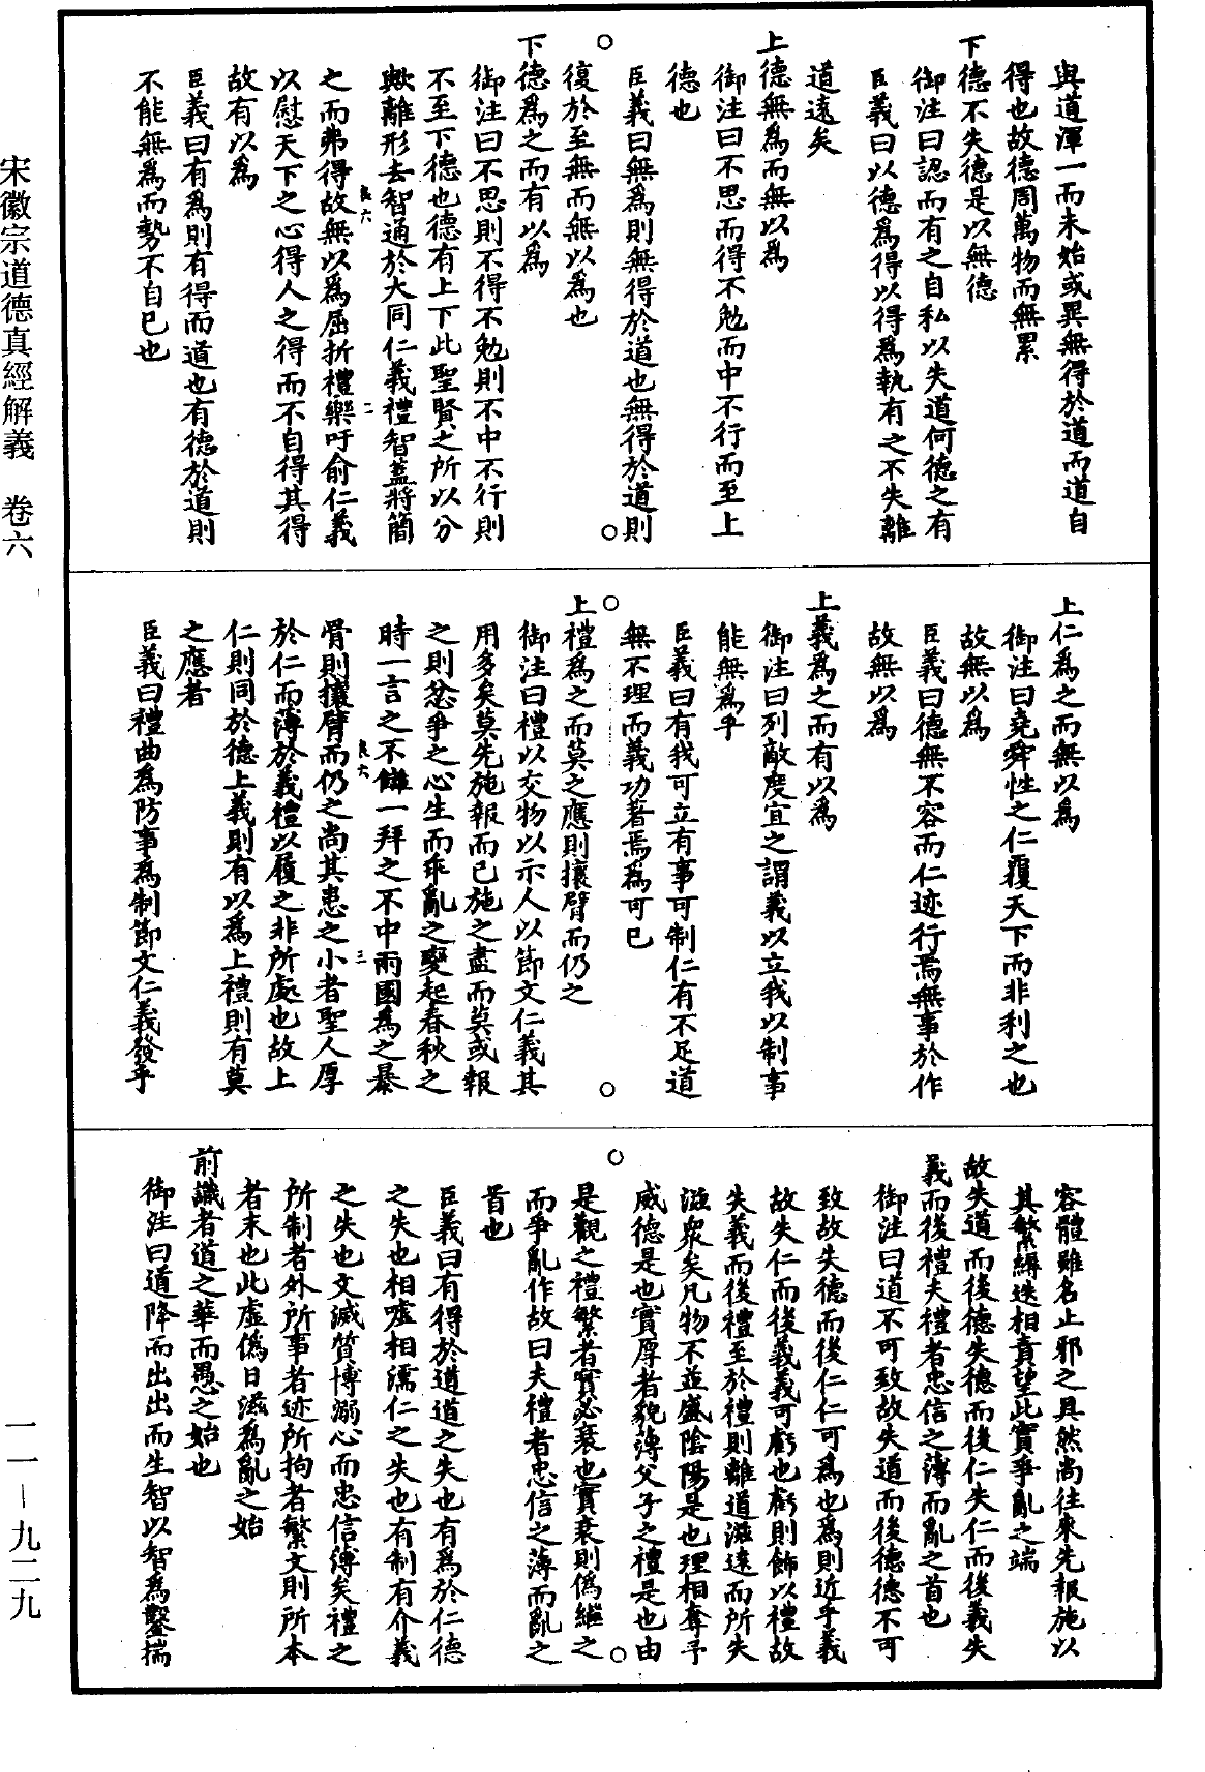 與道渾一而未始或異無得於道而道自
得也故德周萬物而無累
下德不失德是以無德
御注曰認而有之自私以失道何德之有
臣義曰以德為得以得為執有之不失離
道遠矣
上德無為而無以為
御注曰不思而得不勉而中不行而至上
德也
臣義曰無為則無得於道也無得於道則
復於至無而無以為也
下德為之而有以為
御注曰不思則不得不勉則不中不行則
不至下德也德有上下此聖賢之所以分
歟離形去智通於大同仁義禮智蓋將簡
之而弗得故無以為屈折禮樂吁俞仁義
以慰天下之心得人之得而不自得其得
故有以為
臣義曰有為則有得而道也有德於道則
不能無為而勢不自已也
上仁為之而無以為
御注曰堯舜性之仁覆天下而非利之也
故無以為
臣義曰德無不容而仁迹行焉無事於作
故無以為
上義為之而有以為
御注曰列敵度宜之謂義以立我以制事
能無為乎
臣義曰有我可立有事可制仁有不足道
無不理而義功著焉為可已
上禮為之而莫之應則攘臂而仍之
御注曰禮以交物以示人以節文仁義其
用多矣莫先施報而已施之盡而莫或報
之則忿爭之心生而乖亂之變起春秋之
時一言之不讎一拜之不中兩國為之暴
骨則攘臂而仍之尚其患之小者聖人厚
於仁而薄於義禮以履之非所處也故上
仁則同於德上義則有以為上禮則有莫
之應者
臣義曰禮曲為防事為制節文仁義發乎
容體雖名止邪之具然尚往來先報施以
其繁縟迭相責望此實爭亂之端
故失道而後德失德而後仁失仁而後義失
義而後禮夫禮者忠信之薄而亂之首也
御注曰道不可致故失道而後德德不可
致故失德而後仁仁可為也為則近乎義
故失仁而後義義可虧也虧則飾以禮故
失義而後禮至於禮則離道滋遠而所失
滋眾矣凡物不並盛陰陽是也理相奪予
威德是也實厚者貌薄父子之禮是也由
是觀之禮繁者實必衰也實衰則偽繼之
而爭亂作故曰夫禮者忠信之薄而亂之
首也
臣義曰有得於道道之失也有為於仁德
之失也相噓相濡仁之失也有制有介義
之失也文滅質博溺心而忠信薄矣禮之
所制者外所事者迹所拘者繁文則所本
者末也此虛偽日滋為亂之始
前識者道之華而愚之始也
御注曰道降而出出而生智以智為鑿揣
宋徽宗道德真經解義　卷六
一一－九二九